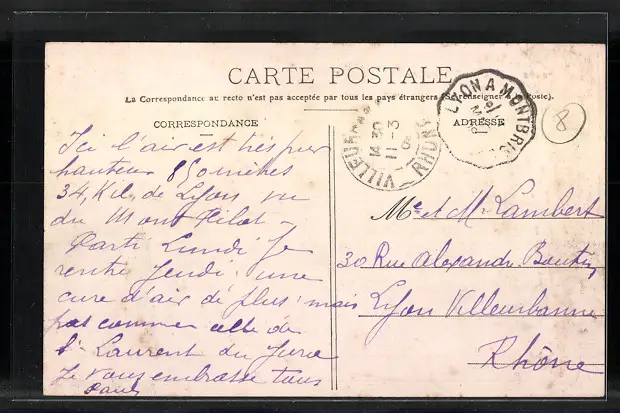 CARTE POSTALE
La Correspondance au recto n'est pas acceptée par tous les pays étrangers (Se renseigner à la Poste).
CORRESPONDANCE
ADRESSE
LYON A MONTBRIS
VILLEURB
14 30
11-3
RHONE
8
Ici l'air est très pur
hauteur 850 mètres
34, Kil. de Lyon vu
du Mont Pilat -
Parti Lundi Je
rentre Jeudi. une
cure d'air de plus; mais
pas comme celle de
St Laurent du Jura
Je vous embrasse tous
Me et Mr Lambert
30 Rue Alexandre Boutin
Lyon Villeurbanne
Rhône